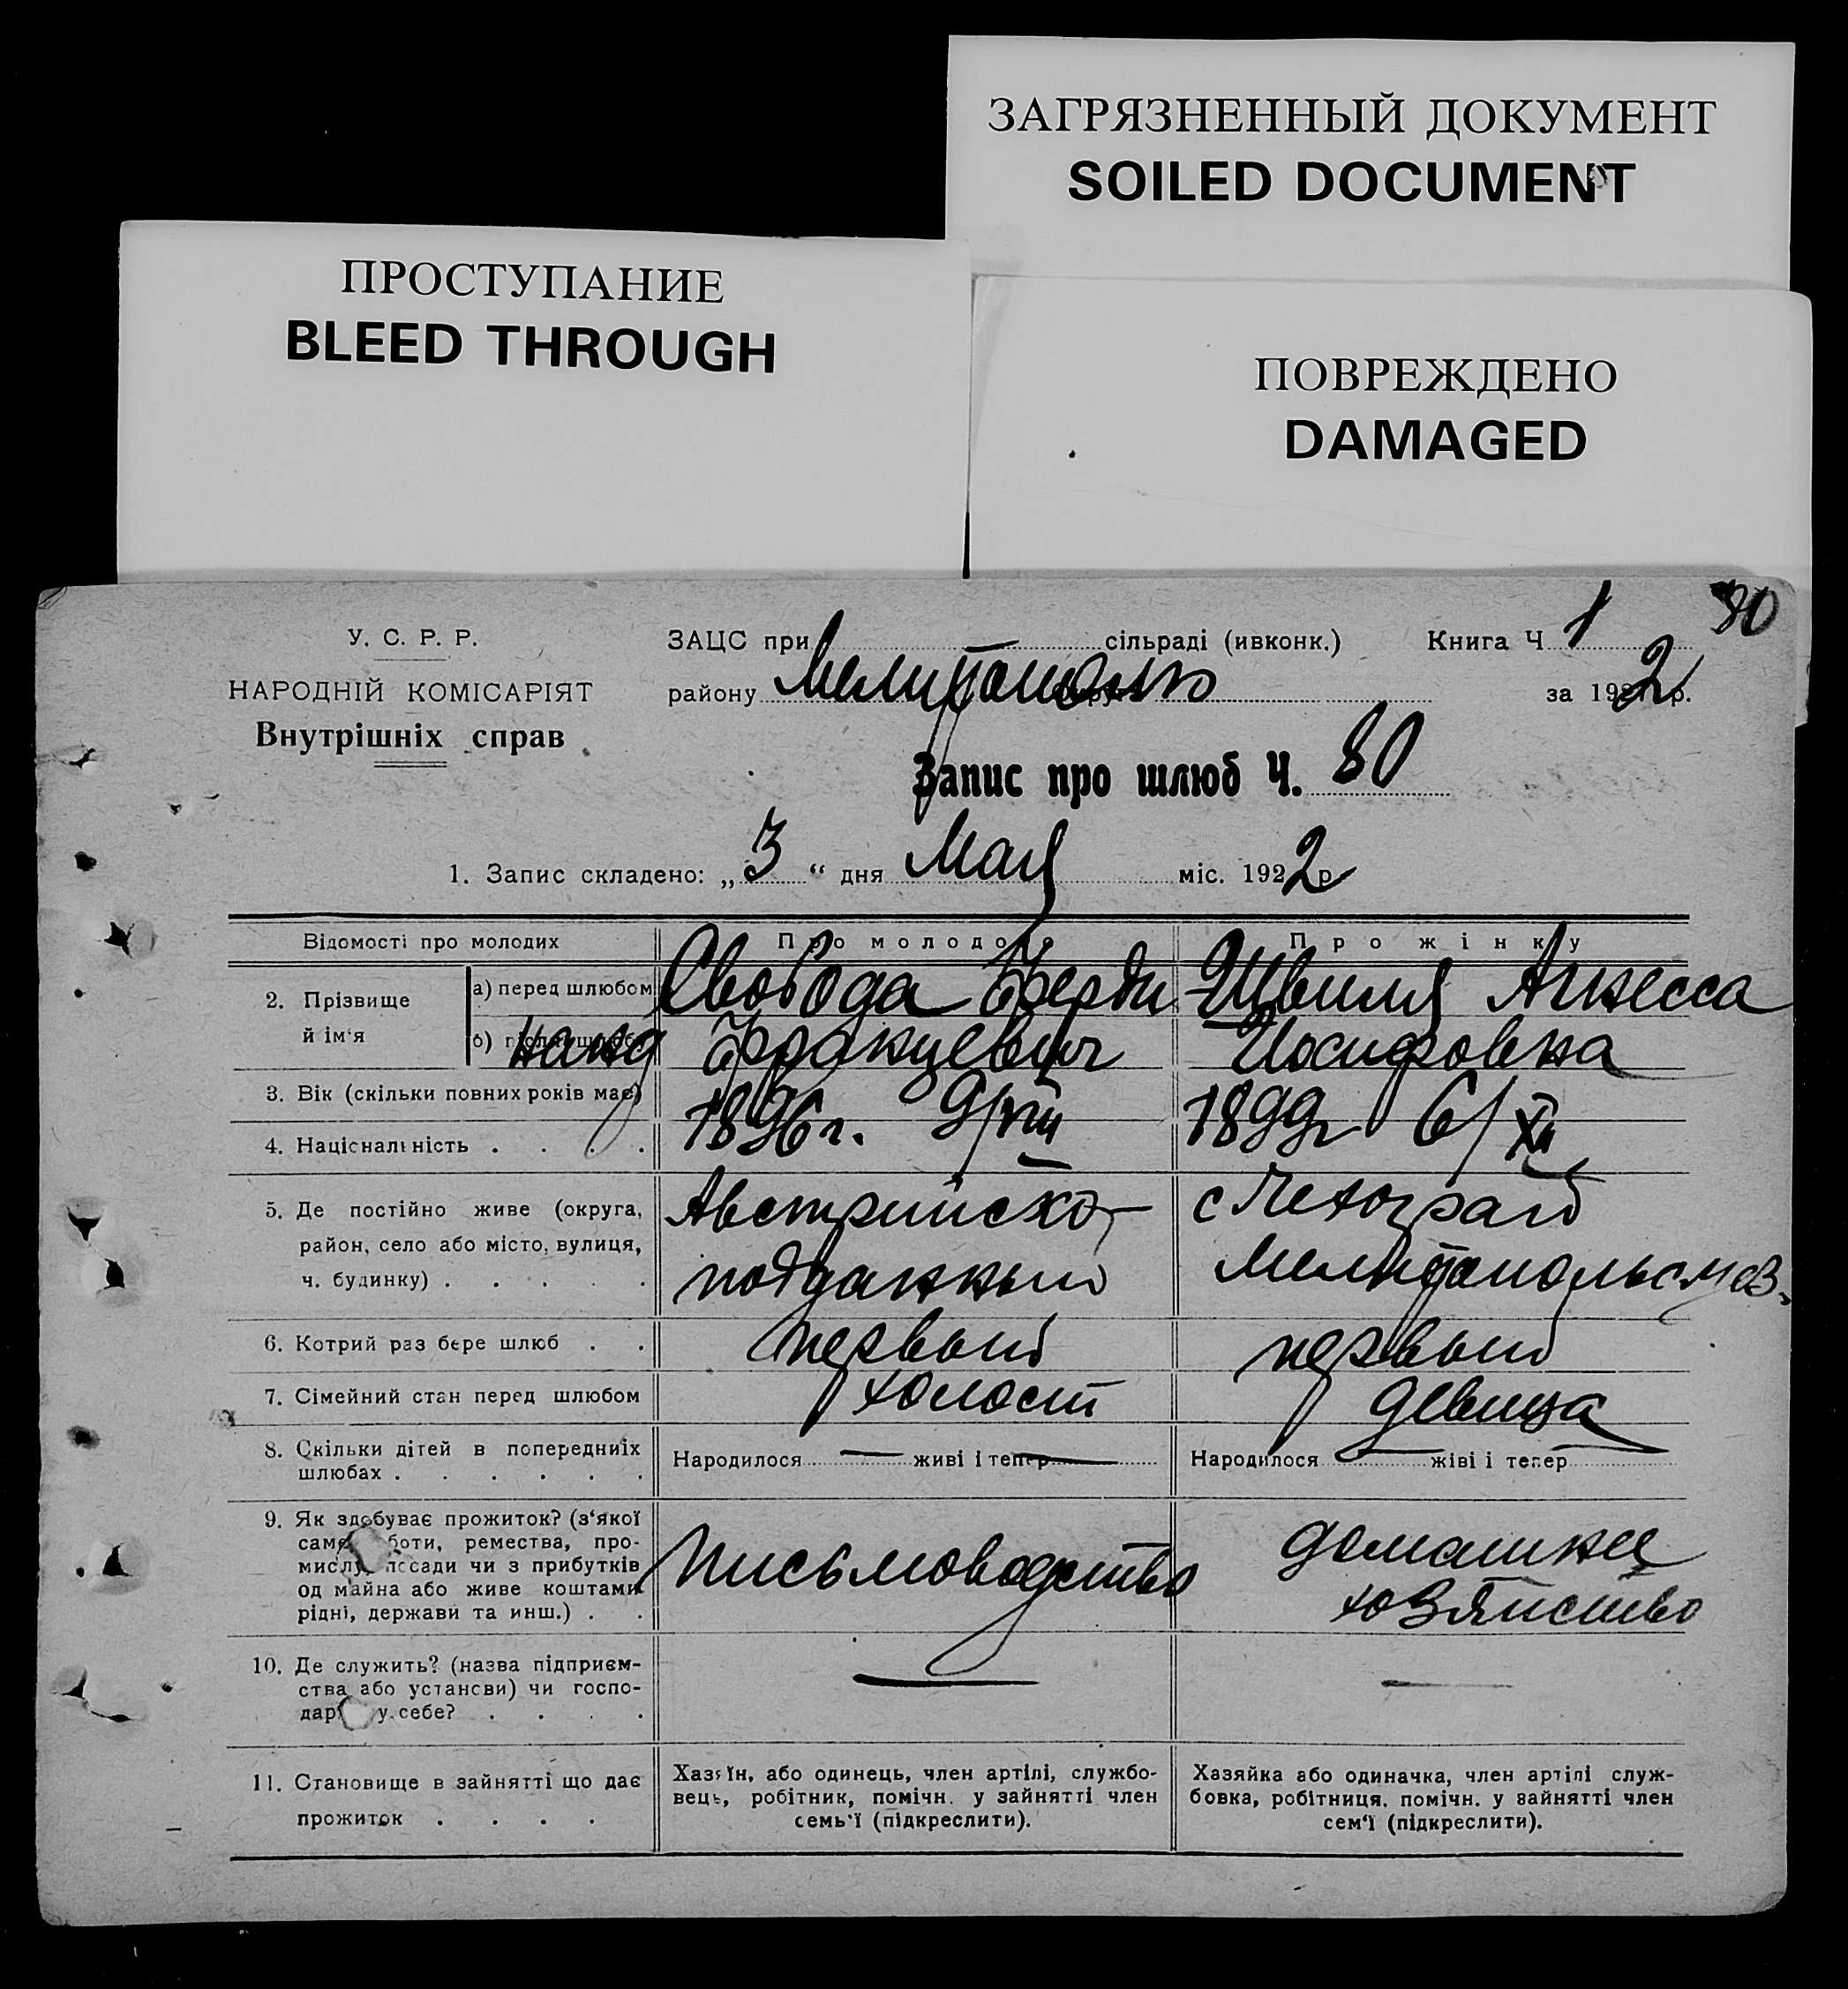 ЗАГРЯЗНЕННЫЙ ДОКУМЕНТ
SOILED DOCUMENT
ПРОСТУПАНИЕ
BLEED THROUGH
ПОВРЕЖДЕНО
DAMAGED
80
У. С. Р. Р.
НАРОДНІЙ КОМІСАРІЯТ
Внутрішніх справ
ЗАЦС при сільраді (ивконк.) Книга Ч 1
району за 192 2 р.
Запис про шлюб Ч. 80
1. Запис складено: „3“ дня Мая міс. 1922 р
Відомості про молодих Про молодого Про жінку
2. Прізвище й ім‘я
а) перед шлюбом Свобода Ферди Швиля Агнесса
б) після шлюбу нанд Францевич Иосифовна
3. Вік (скільки повних років має) 1896 г. 9/VIII 1899 г 6/XII
4. Національність . . . .
5. Де постійно живе (округа, район, село або місто, вулиця, ч. будинку) . . . . .
Австрийско-
подданный
с Чехоград
6. Котрий раз бере шлюб . . первый первый
7. Сімейний стан перед шлюбом холост девица
8. Скільки дітей в попередниіх шлюбах . . . . . .
Народилося — живі і тепер — Народилося — жіві і тепер
9. Як здобуває прожиток? (з‘якої саме роботи, ремества, про-
мислу, посади чи з прибутків
од майна або живе коштами
рідні, держави та инш.) . .
письмоводство
домашнее
хозяйство
10. Де служить? (назва підприєм-
ства або установи) чи госпо-
дар у себе? . . . .
— —
11. Становище в зайнятті що дає
прожиток . . . .
Хазяїн, або одинець, член артілі, службо-
вець, робітник, помічн. у зайнятті член
семь‘ї (підкреслити).
Хазяйка або одиначка, член артілі служ-
бовка, робітниця, помічн. у зайнятті член
сем‘ї (підкреслити).